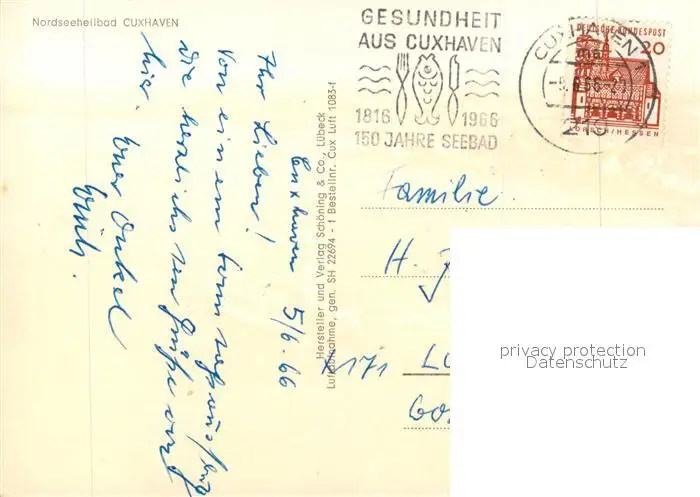 Nordseeheilbad CUXHAVEN
GESUNDHEIT
AUS CUXHAVEN
1816 1966
150 JAHRE SEEBAD
CUXHAVEN
DEUTSCHE BUNDESPOST
20
LORSCH/HESSEN
Hersteller und Verlag Schöning & Co., Lübeck
Luftaufnahme, gen. SH 22694 - 1 Bestellnr. Cux Luft 1083-f
Cuxhaven 5/6.66
Ihr Lieben!
Von einem
die herzlichsten Grüße von
hier. Euer Onkel
Familie
H.
privacy protection
Datenschutz